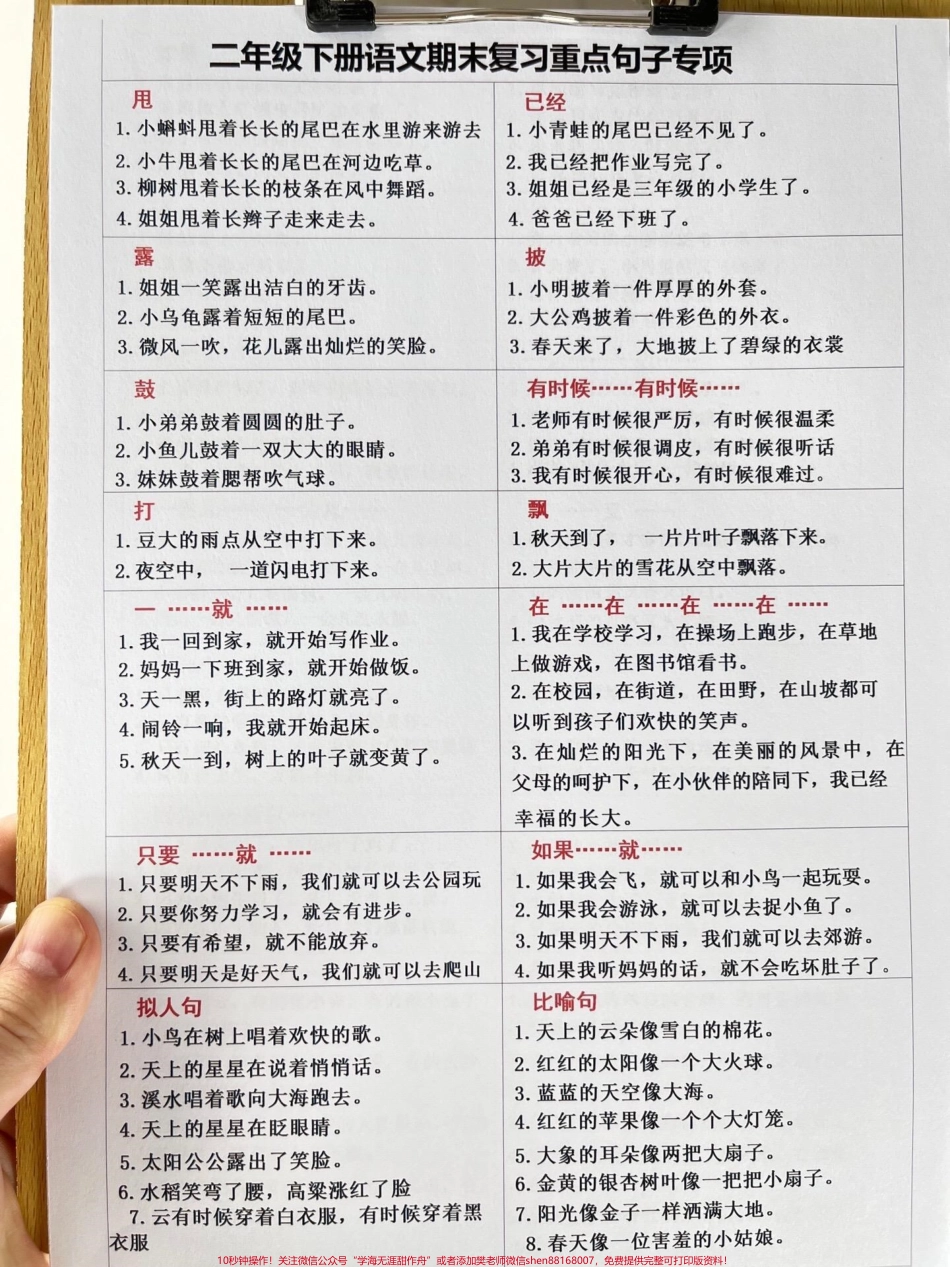 二年级下册语文期末复习重点句子专项
甩
1. 小蝌蚪甩着长长的尾巴在水里游来游去
2. 小牛甩着长长的尾巴在河边吃草。
3. 柳树甩着长长的枝条在风中舞蹈。
4. 姐姐甩着长辫子走来走去。
已经
1. 小青蛙的尾巴已经不见了。
2. 我已经把作业写完了。
3. 姐姐已经是三年级的小学生了。
4. 爸爸已经下班了。
露
1. 姐姐一笑露出洁白的牙齿。
2. 小乌龟露着短短的尾巴。
3. 微风一吹，花儿露出灿烂的笑脸。
披
1. 小明披着一件厚厚的外套。
2. 大公鸡披着一件彩色的外衣。
3. 春天来了，大地披上了碧绿的衣裳
鼓
1. 小弟弟鼓着圆圆的肚子。
2. 小鱼儿鼓着一双大大的眼睛。
3. 妹妹鼓着腮帮吹气球。
有时候……有时候……
1. 老师有时候很严厉，有时候很温柔
2. 弟弟有时候很调皮，有时候很听话
3. 我有时候很开心，有时候很难过。
打
1. 豆大的雨点从空中打下来。
2. 夜空中， 一道闪电打下来。
飘
1. 秋天到了， 一片片叶子飘落下来。
2. 大片大片的雪花从空中飘落。
一 ……就 ……
1. 我一回到家，就开始写作业。
2. 妈妈一下班到家，就开始做饭。
3. 天一黑，街上的路灯就亮了。
4. 闹铃一响，我就开始起床。
5. 秋天一到，树上的叶子就变黄了。
在 ……在 ……在 ……在 ……
1. 我在学校学习，在操场上跑步，在草地
上做游戏，在图书馆看书。
2. 在校园，在街道，在田野，在山坡都可
以听到孩子们欢快的笑声。
3. 在灿烂的阳光下，在美丽的风景中，在
父母的呵护下，在小伙伴的陪同下，我已经
幸福的长大。
只要 ……就 ……
1. 只要明天不下雨，我们就可以去公园玩
2. 只要你努力学习，就会有进步。
3. 只要有希望，就不能放弃。
4. 只要明天是好天气，我们就可以去爬山
如果……就……
1. 如果我会飞，就可以和小鸟一起玩耍。
2. 如果我会游泳，就可以去捉小鱼了。
3. 如果明天不下雨，我们就可以去郊游。
4. 如果我听妈妈的话，就不会吃坏肚子了。
拟人句
1. 小鸟在树上唱着欢快的歌。
2. 天上的星星在说着悄悄话。
3. 溪水唱着歌向大海跑去。
4. 天上的星星在眨眼睛。
5. 太阳公公露出了笑脸。
6. 水稻笑弯了腰，高粱涨红了脸
7. 云有时候穿着白衣服，有时候穿着黑
衣服
比喻句
1. 天上的云朵像雪白的棉花。
2. 红红的太阳像一个大火球。
3. 蓝蓝的天空像大海。
4. 红红的苹果像一个个大灯笼。
5. 大象的耳朵像两把大扇子。
6. 金黄的银杏树叶像一把把小扇子。
7. 阳光像金子一样洒满大地。
8. 春天像一位害羞的小姑娘。
10秒钟操作！关注微信公众号“学海无涯甜作舟”或者添加樊老师微信shen88168007，免费提供完整可打印版资料！